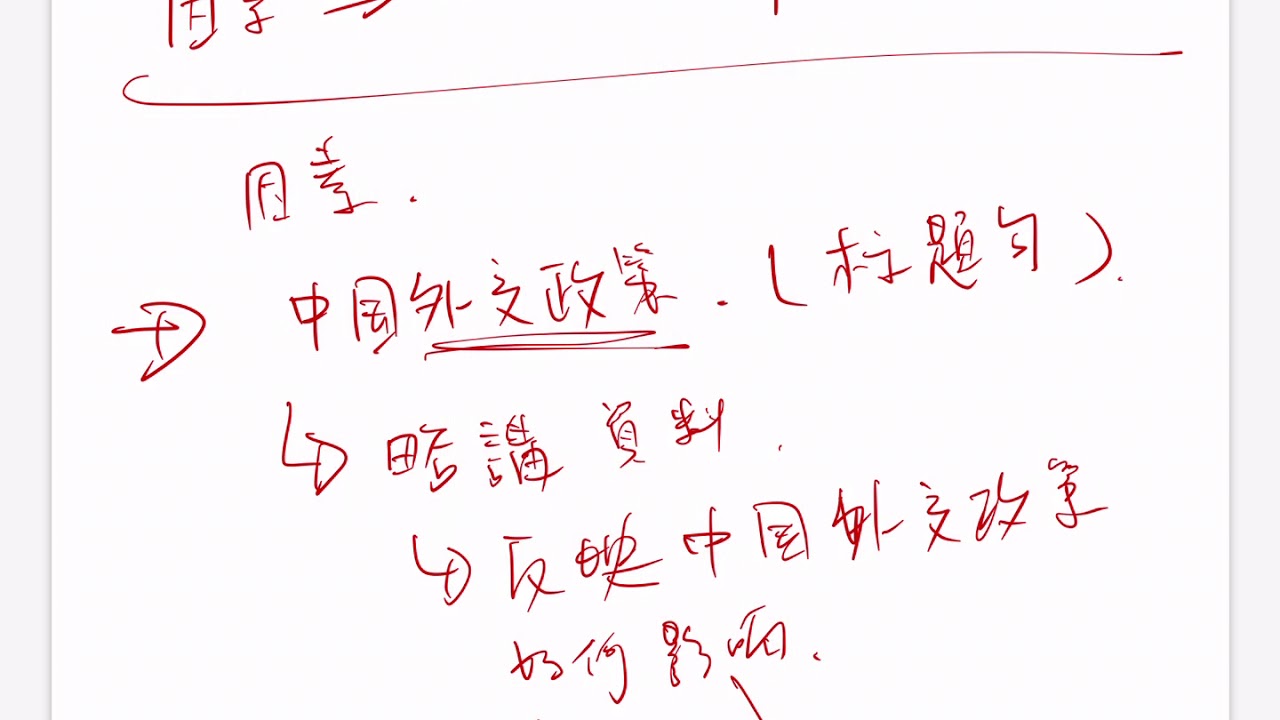 因素 →
因素.
→ 中国外交政策. (标題句).
↳ 略講資料.
↳ 反映中国外交政策
如何影响.